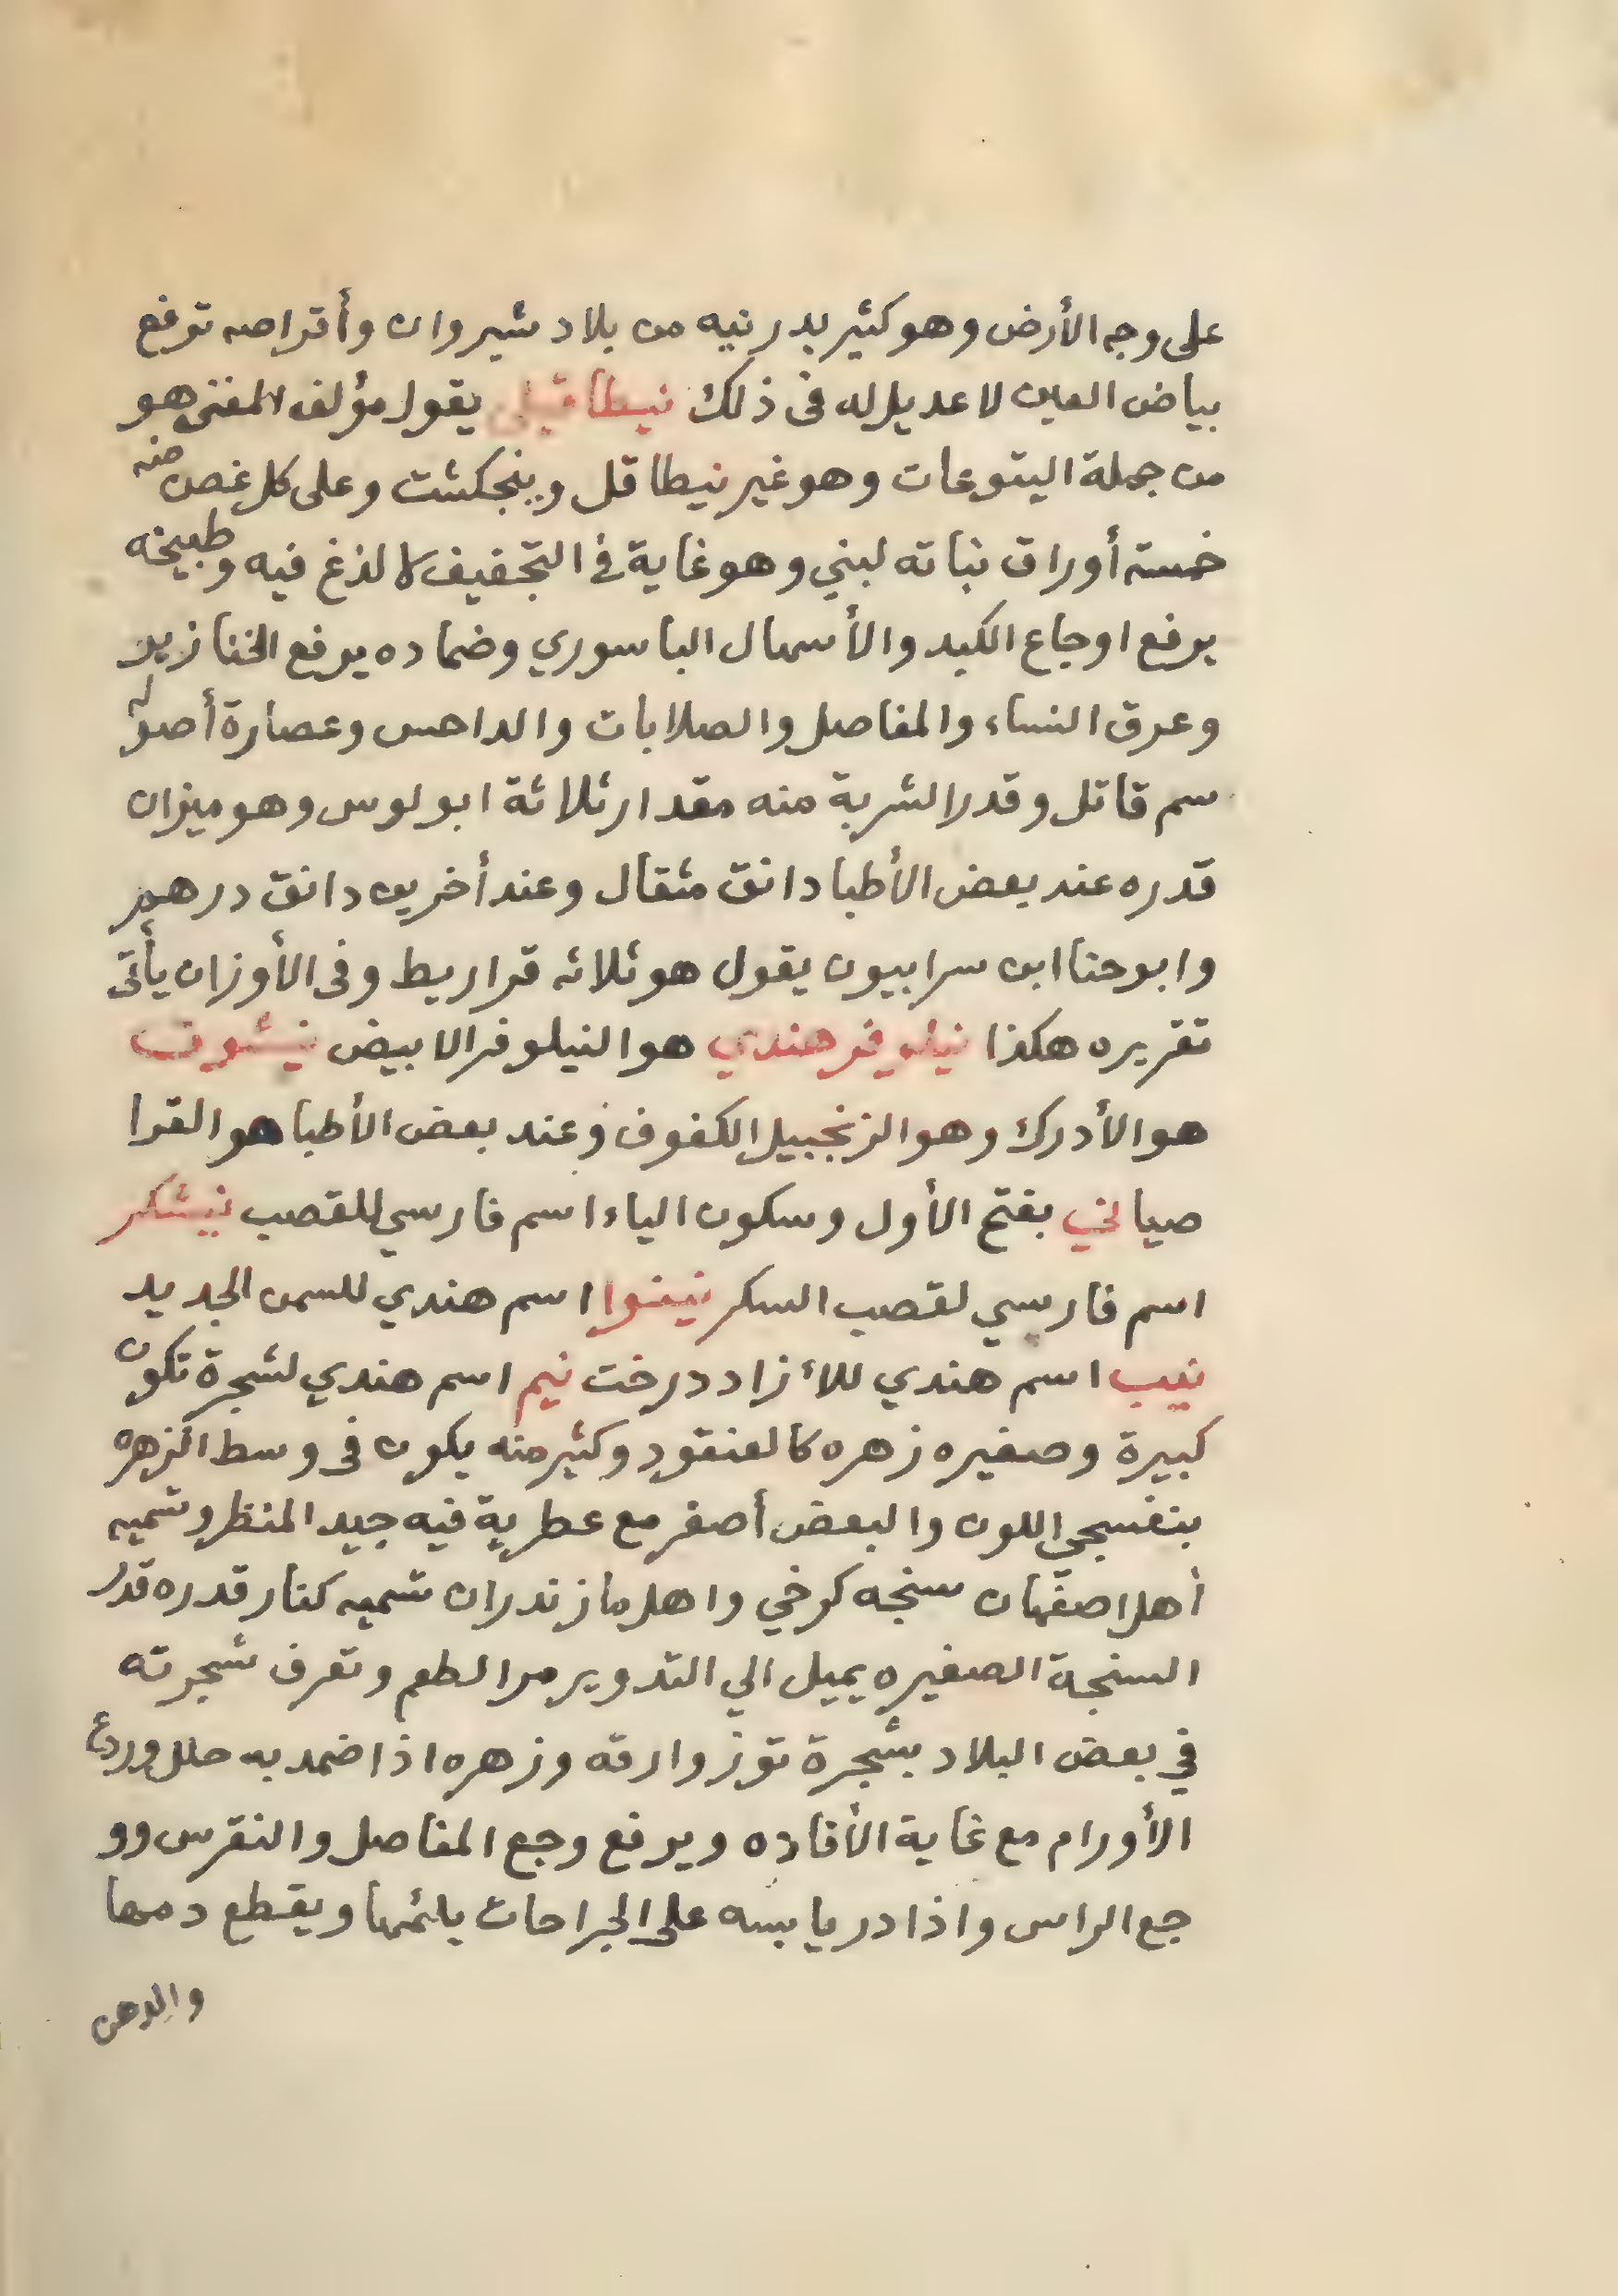 على وجه الأرض وهو كثير بدرنيه من بلاد شيروان وأقراصه ترفع
بياض العين لا عديل له فى ذلك نيطاقيلى يقول مؤلف المغنى هو
من جملة اليتوعات وهو غير نيطاقل وينجكشت وعلى كل غصن منه
خمسة أوراق نباته لبني وهو غاية في التجفيف لا لذغ فيه وطبيخه
يرفع اوجاع الكبد والأسهال الباسوري وضماده يرفع الخنازير
وعرق النساء والمفاصل والصلابات والداحس وعصارة أصوله
سم قاتل وقدر الشربة منه مقدار ثلاثة ابولوس وهو ميزان
قدره عند بعض الأطبا دانق مثقال وعند أخرين دانق درهم
وابوحنا ابن سرابيون يقول هو ثلاثه قراريط وفى الأوزان يأتى
تقريره هكذا نيلوفر هندي هو النيلوفر الابيض نيشوق
هو الأدرك وهو الزنجبيل الكفوف وعند بعض الأطبا هو القرا
صيا ني بفتح الأول وسكون الياء اسم فارسي للقصب نيشكر
اسم فارسي لقصب السكر نينوا اسم هندي للسمن الجديد
نيب اسم هندي للأزاد درخت نيم اسم هندي لشجرة تكون
كبيرة وصغيره زهره كالعنقود وكثير منه يكون فى وسط الزهره
بنفسجي اللون والبعض أصفر مع عطرية فيه جيد المنظر وتسميه
أهل اصفهان سنجه كرخي واهل مازندران تسميه كنار قدره قدر
السنجة الصغيره يميل الي التدوير مر الطعم وتعرف شجرته
في بعض البلاد بشجرة توز وارقه وزهره اذا ضمد به حلل وردع
الأورام مع غاية الأفاده ويرفع وجع المفاصل والنقرس وو
جع الراس واذا در يابسه على الجراحات يلئمها ويقطع دمها
والدهن